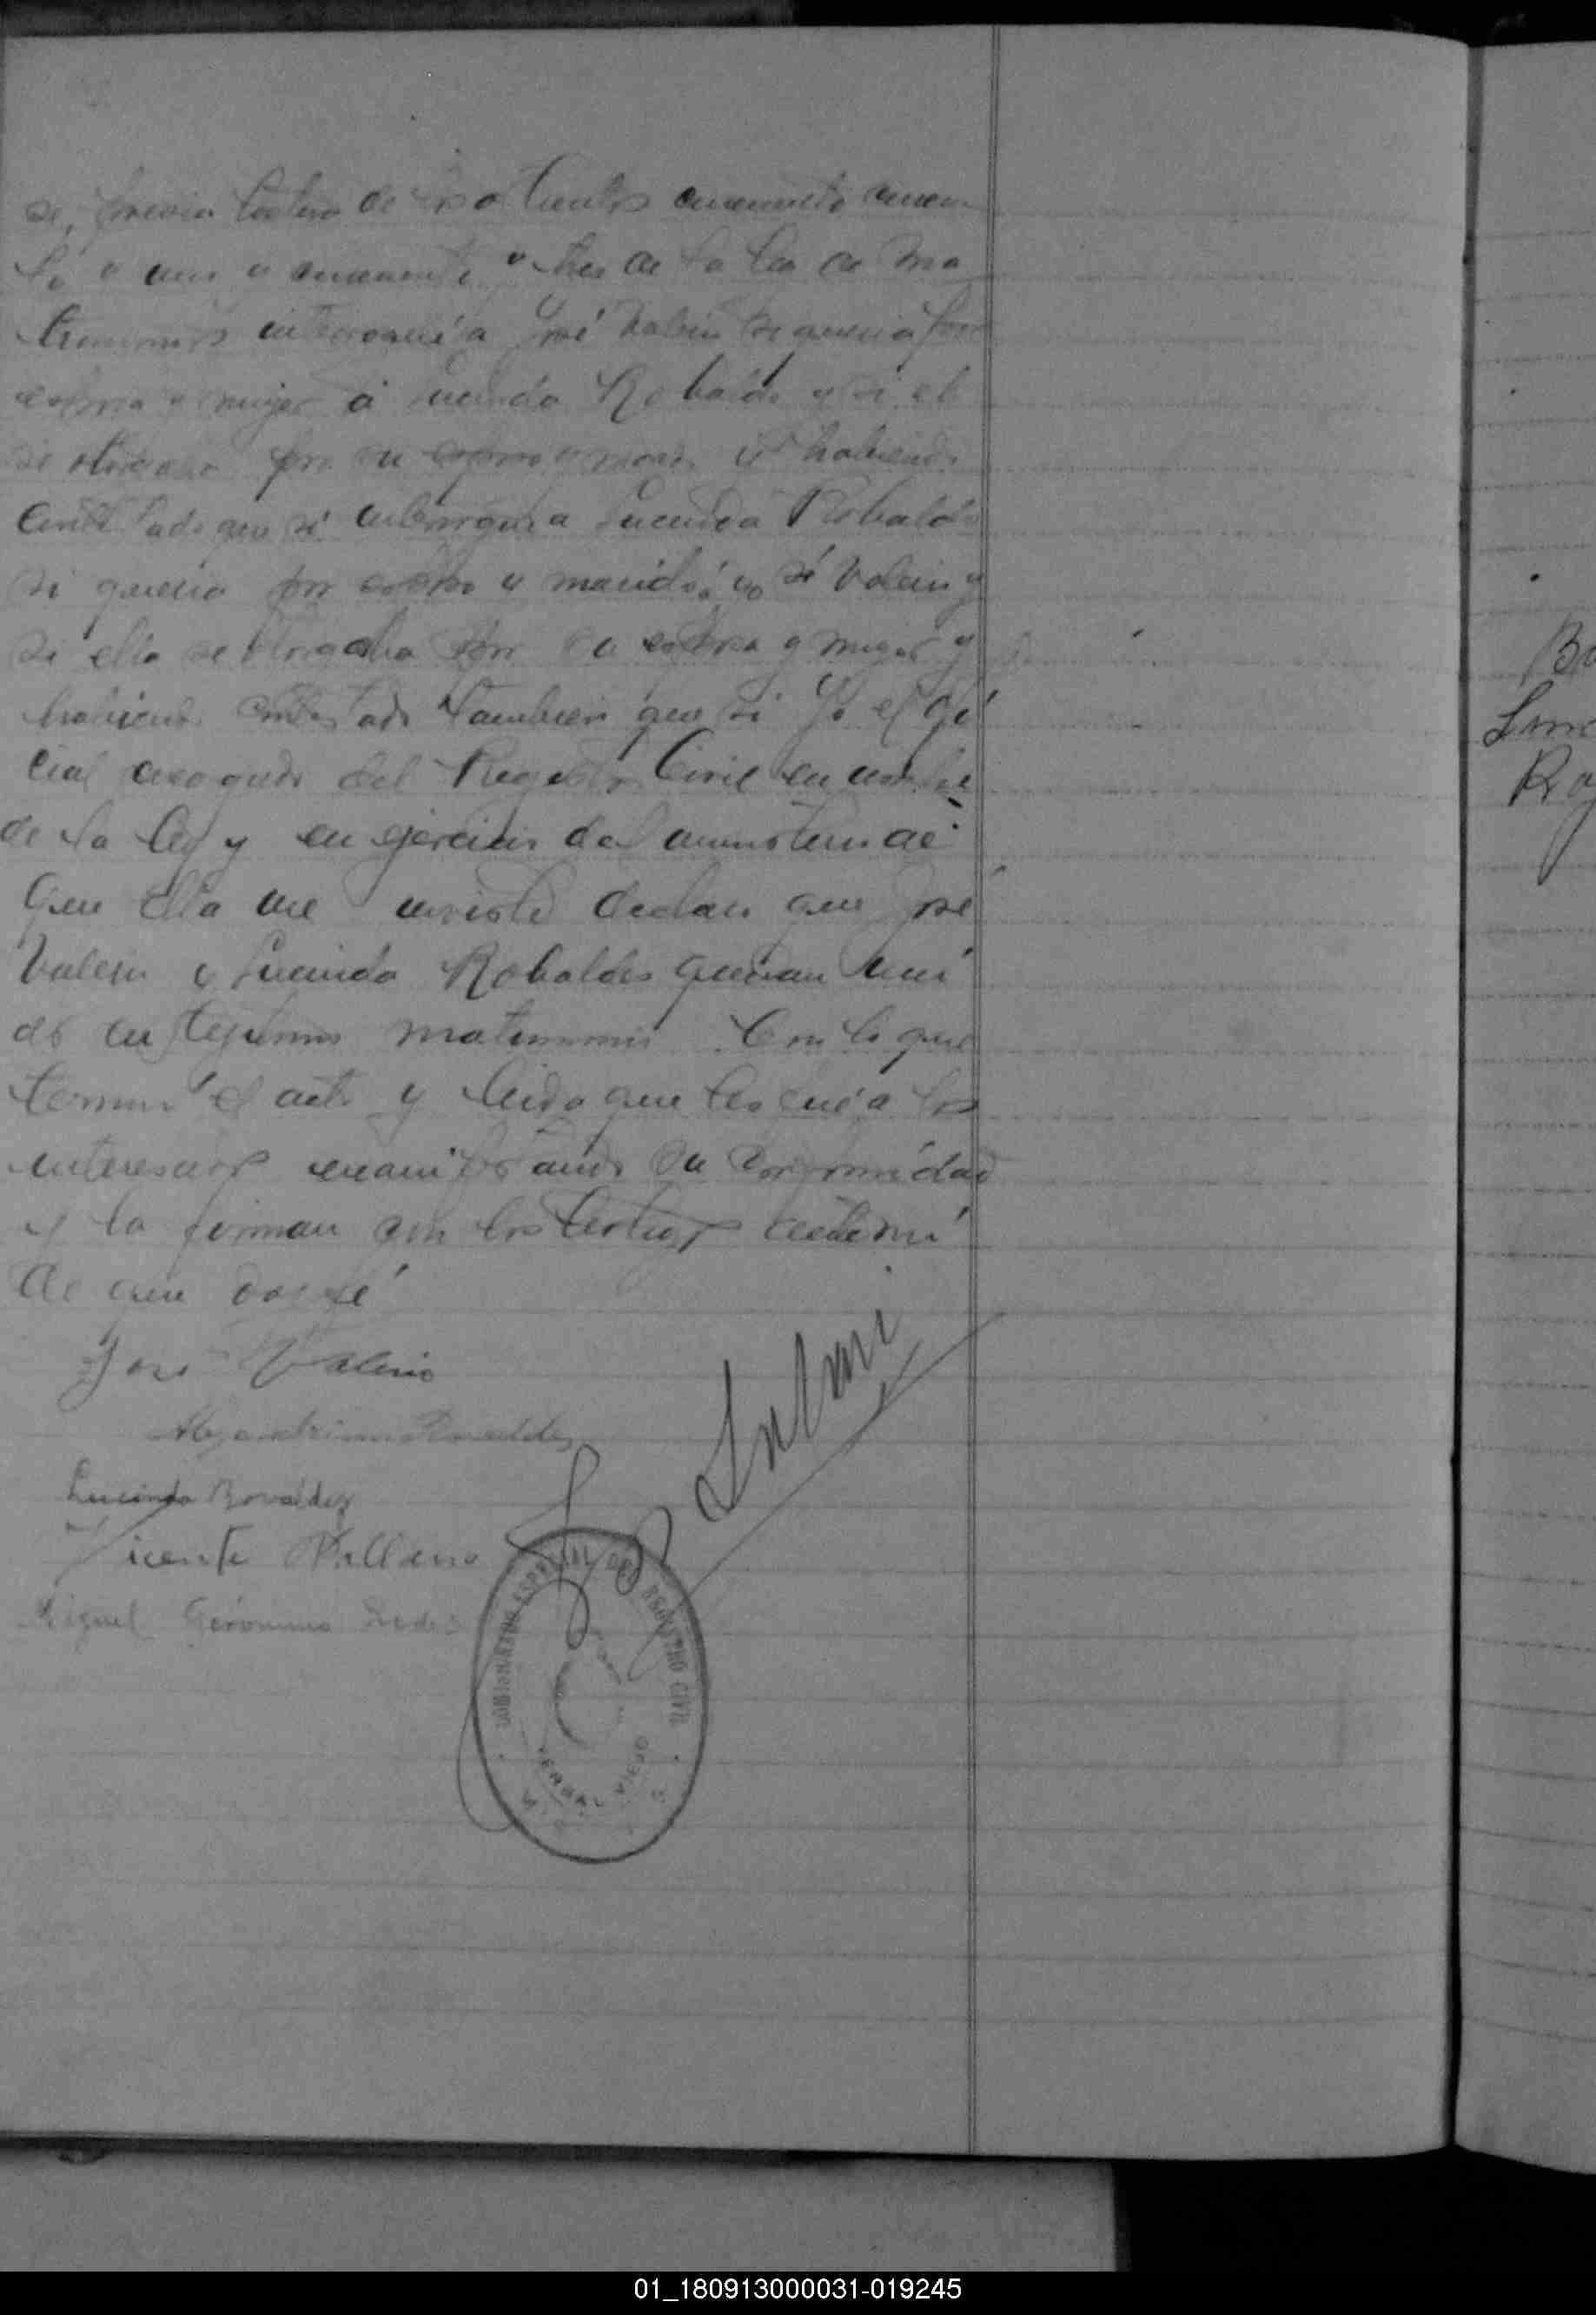 se, previa lectura de los artículos cincuenta cincuen
ta y uno y cincuenta y tres de la ley de ma
trimonio interrogué a José Valerio si quería por
esposa y mujer á Lucinda Robaldo y si el
se otorgaba por su esposo y marido y habiendo
contestado que si interrogué a Lucinda Robaldo
si quería por esposo y marido á José Valerio y
si ella se otorgaba por su esposa y mujer y
habiendo contestado tambien que si Yo el Ofi
cial encargado del Registro Civil en nombre
de la ley y en ejercicio del ministerio de
que ella me inviste declaro que José
Valerio y Lucinda Robaldos quedan uni
dos en legítimo matrimonio Con lo que
terminó el acto y leida que les fué a los
interesados manifestando su conformidad
y la firman con los testigos ante mí
de que doy fé
José Valerio
Lucinda Rovaldez
Vicente
Miguel Gerónimo
REGISTRO CIVIL
YERBAL VIEJO
Ro
01_180913000031-019245